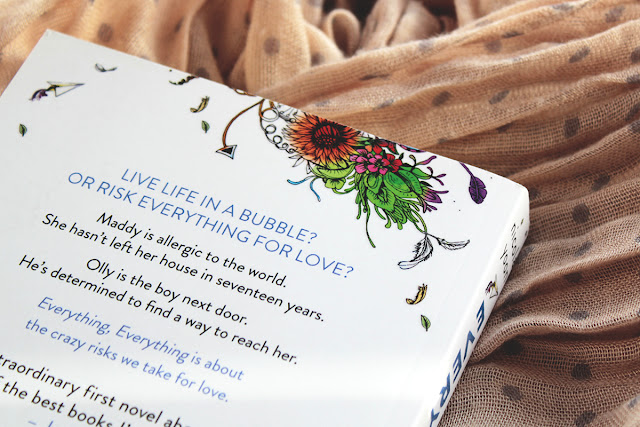 LIVE LIFE IN A BUBBLE?
OR RISK EVERYTHING FOR LOVE?
Maddy is allergic to the world.
She hasn't left her house in seventeen years.
Olly is the boy next door.
He's determined to find a way to reach her.
Everything, Everything is about
the crazy risks we take for love.
traordinary first novel abo
f the best books I'
EVERY